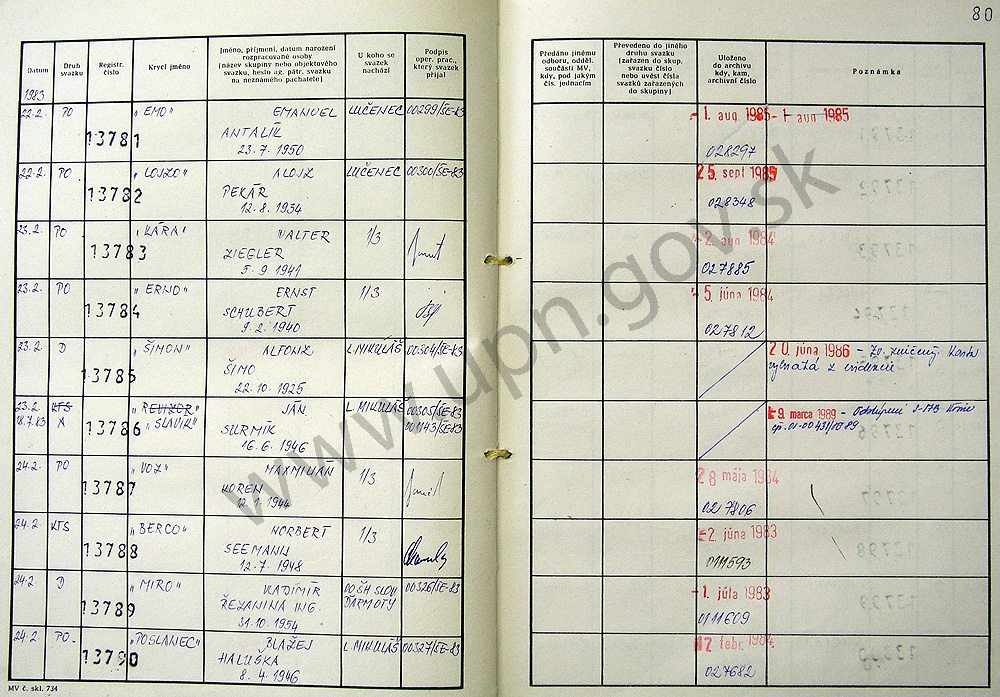 80
Datum
Druh svazku
Registr. číslo
Krycí jméno
Jméno, příjmení, datum narození rozpracované osoby (název skupiny nebo objektového svazku, heslo ag. pátr. svazku na neznámého pachatele)
U koho se svazek nachází
Podpis oper. prac., který svazek přijal
Předáno jinému odboru, odděl. součásti MV, kdy, pod jakým čís. jednacím
Převedeno do jiného druhu svazku (zařazen do skup. svazku číslo nebo uvést čísla svazků zařazených do skupiny)
Uloženo do archivu kdy, kam, archivní číslo
Poznámka
1983
22.2. PO 13781 "EMO" EMANUEL LUČENEC 00299/ŠE-83 - 1. aug 1985 - 1. aug 1985
ANTALÍK
23.7.1950 028297
22.2. PO 13782 "LOJZO" ALOJZ LUČENEC 00300/ŠE-83 25. sept 1985
PEKÁR
12.8.1934 028348
23.2. PO 13783 "KÁRA" WALTER 1/3 - 2. aug 1984
ZIEGLER
5.9.1941 027885
23.2. PO 13784 "ERNO" ERNST 1/3 - 5. júna 1984
SCHUBERT
9.2.1940 027812
23.2. D 13785 "ŠIMON" ALFONZ L. MIKULÁŠ 00304/ŠE-83 20. júna 1986 - Zv. zničený. Karta
ŠIMO vybratá z evidencie
22.10.1925
23.2. KTS 13786 "REVIZOR" JÁN L. MIKULÁŠ 00305/ŠE-83 9. marca 1989
18.7.83 A "SLAVIK" SURMÍK 001143/ŠE-83
16.6.1946
24.2. PO 13787 "VOZ" MAXMILIÁN 1/3 28. mája 1984
KOREN
12.1.1944 027806
24.2. KTS 13788 "BERCO" NORBERT 1/3 - 2. júna 1983
SEEMANN
12.7.1948 0111593
24.2 D 13789 "MIRO" VLADIMÍR OO ŠH SLOV. ĎARMOTY 00326/ŠE-83 - 1. júla 1983
ŘEZANINA ING.
31.10.1954 0111609
24.2. PO 13790 "POSLANEC" BLAŽEJ L MIKULÁŠ 00327/ŠE-83 17. febr. 1984
HALUŠKA
8.4.1946 027682
MV č. skl. 734
www.upn.gov.sk